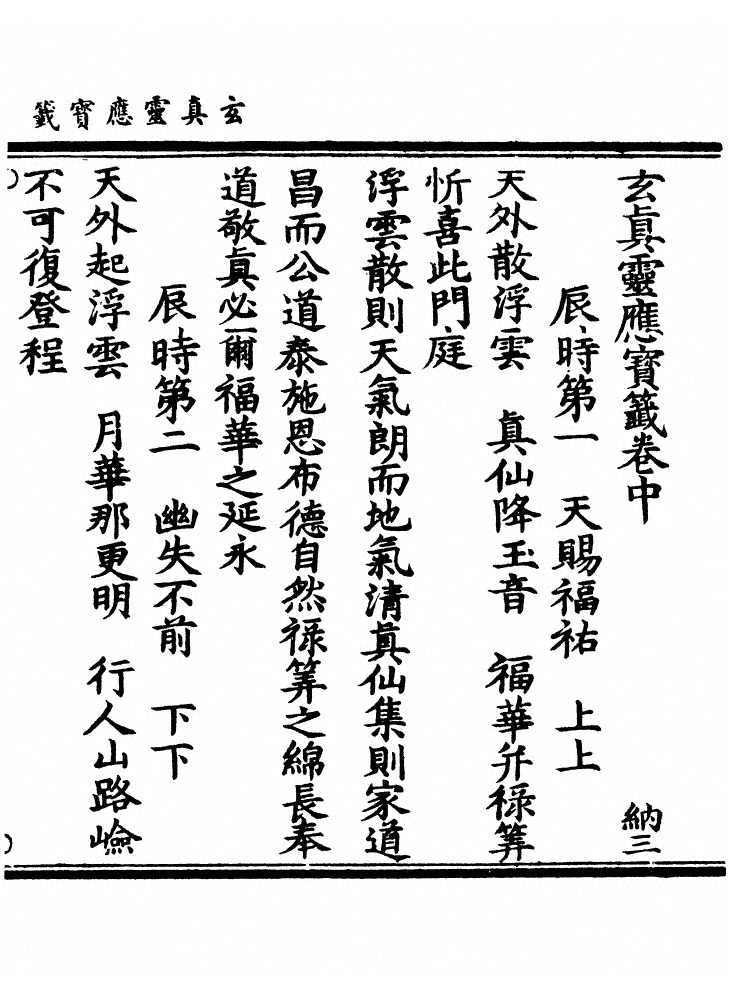 玄真靈應寶籤
玄真靈應寶籤卷中 納三
辰時第一 天賜福祐 上上
天外散浮雲 真仙降玉音 福華并祿筭
忻喜此門庭
浮雲散則天氣朗而地氣清真仙集則家道
昌而公道泰施恩布德自然祿筭之綿長奉
道敬真必爾福華之延永
辰時第二 幽失不前 下下
天外起浮雲 月華那更明 行人山路嶮
不可復登程